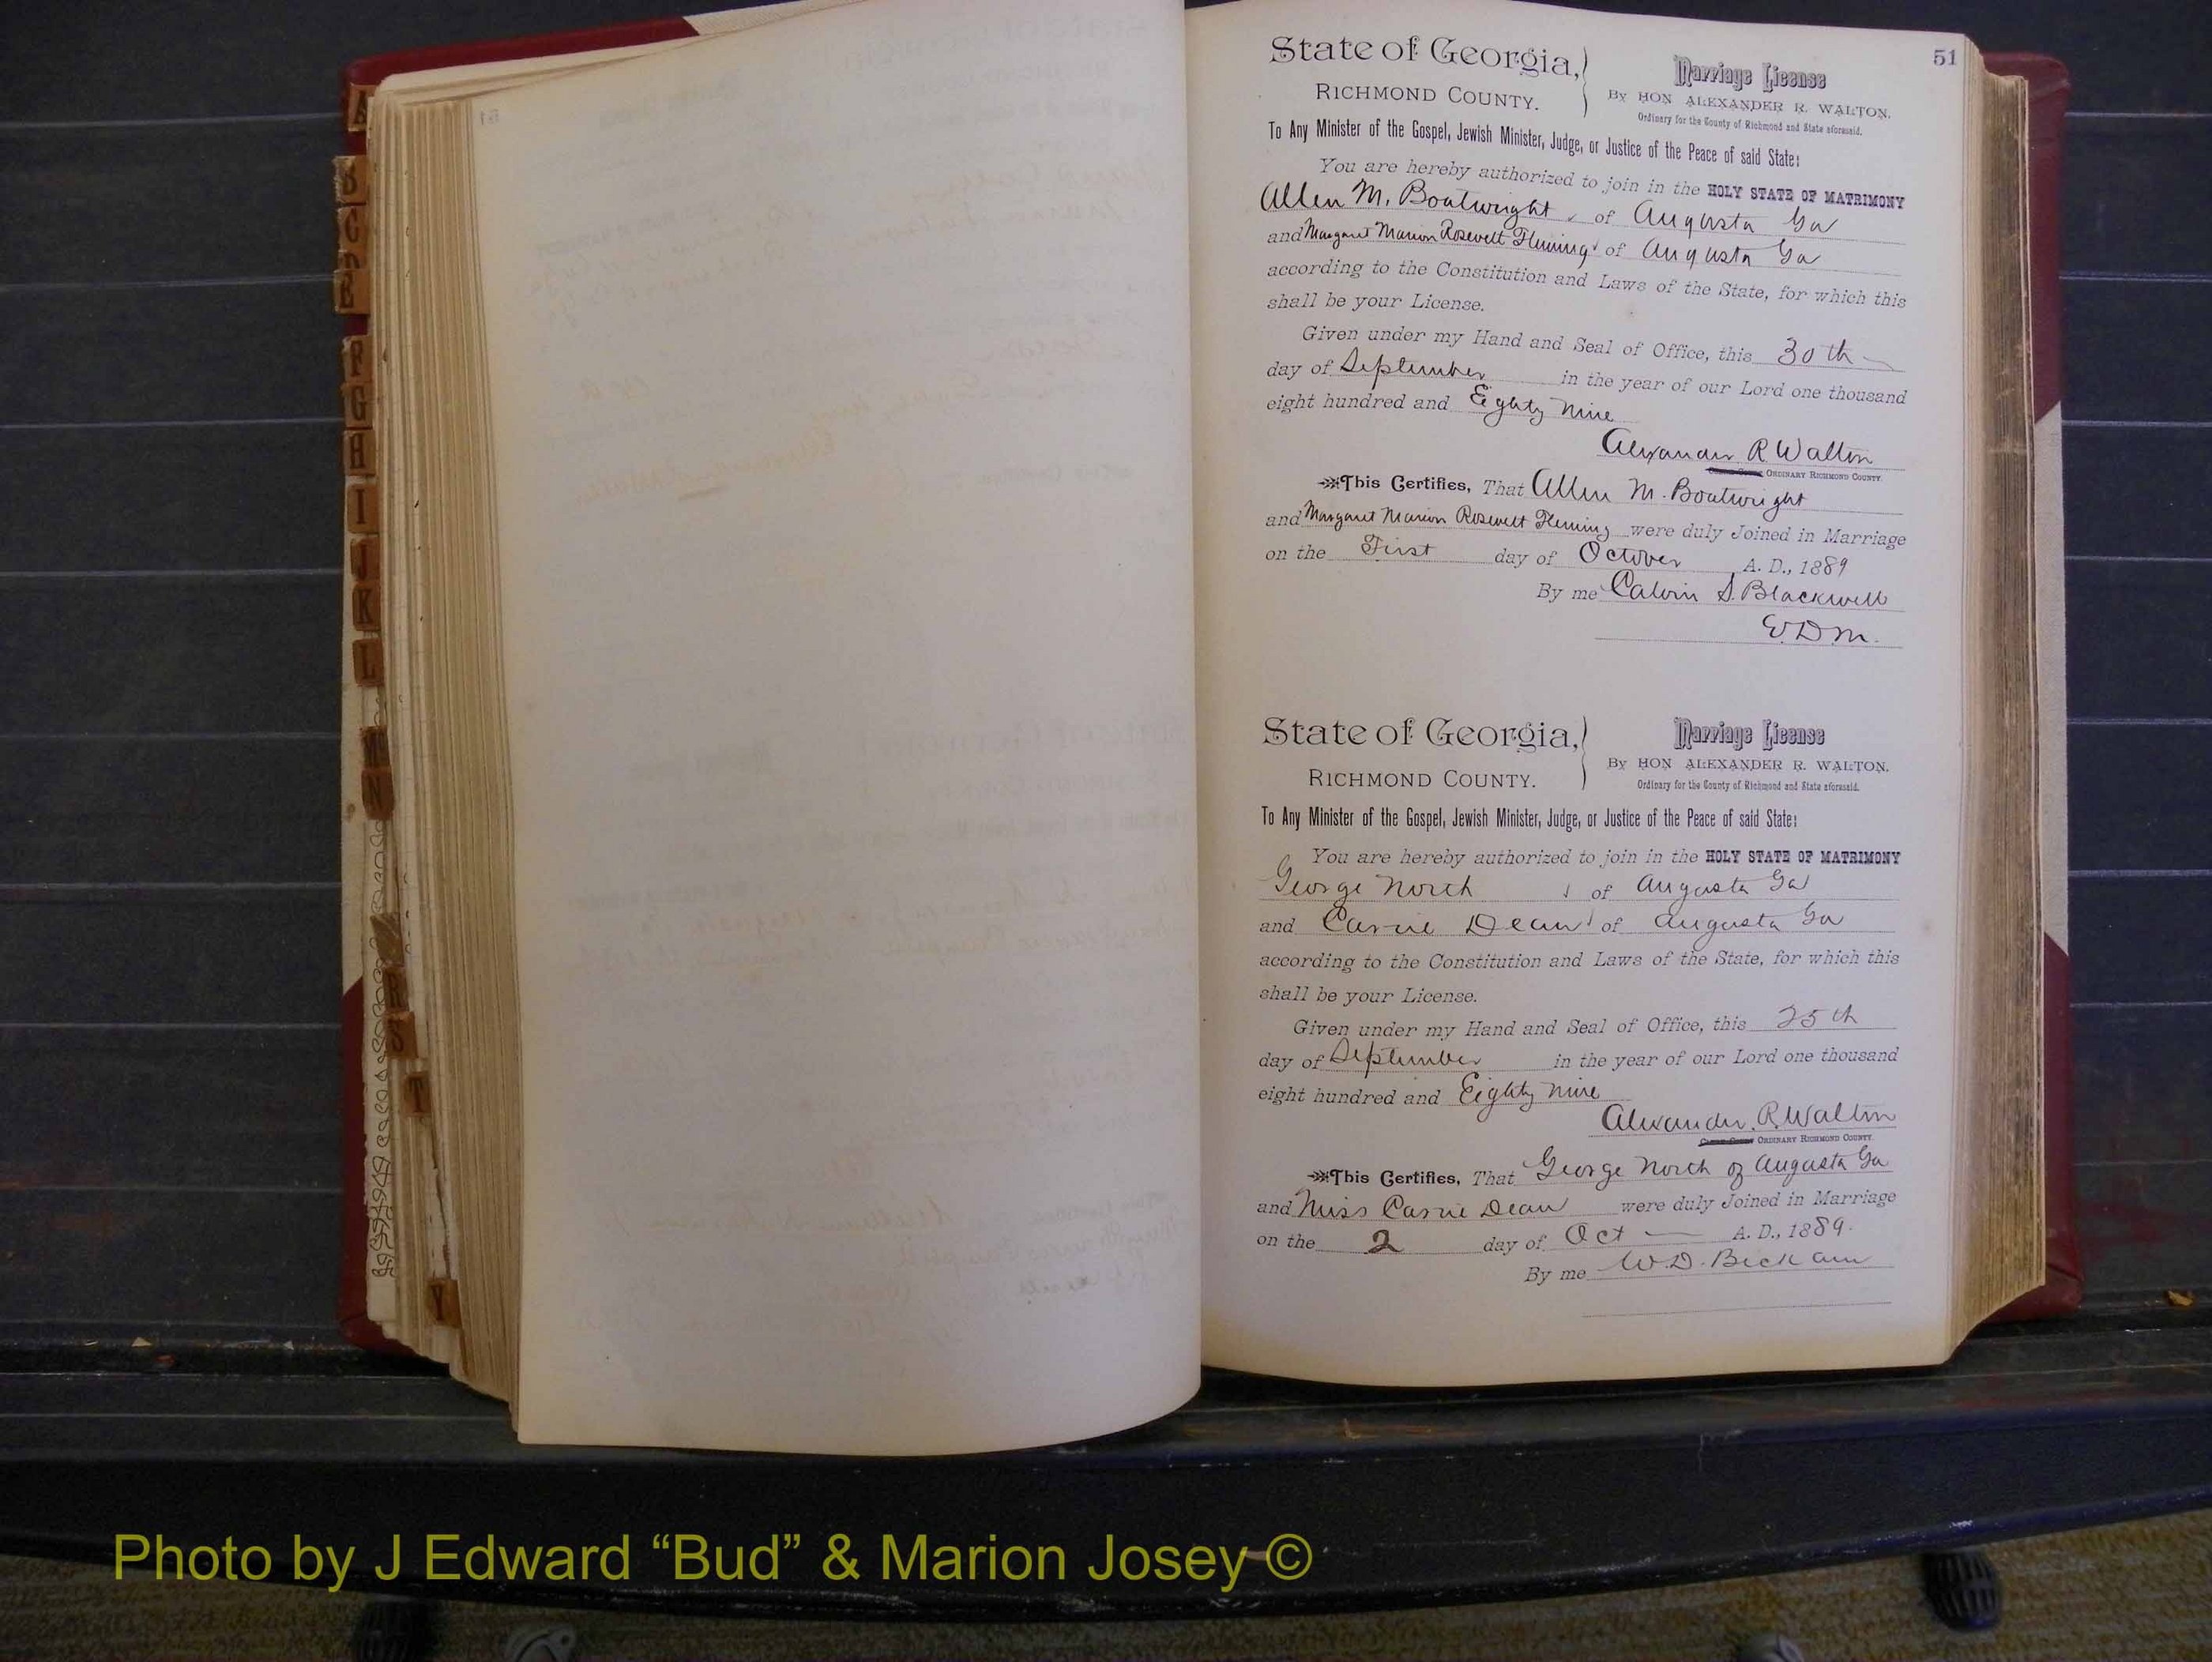 51
State of Georgia,
RICHMOND COUNTY.
Marriage License
By HON ALEXANDER R. WALTON,
Ordinary for the County of Richmond and State aforesaid.
To Any Minister of the Gospel, Jewish Minister, Judge, or Justice of the Peace of said State:
You are hereby authorized to join in the HOLY STATE OF MATRIMONY
Allen M. Boatwright of Augusta Ga
and Margaret Marion Rosevelt Fleming of Augusta Ga
according to the Constitution and Laws of the State, for which this
shall be your License.
Given under my Hand and Seal of Office, this 30th
day of September in the year of our Lord one thousand
eight hundred and Eighty Nine
Alexander R Walton
ORDINARY RICHMOND COUNTY.
This Certifies, That Allen M. Boatwright
and Margaret Marion Rosevelt Fleming were duly Joined in Marriage
on the First day of October A. D., 1889
By me Calvin S. Blackwell
V.D.M.
State of Georgia,
RICHMOND COUNTY.
Marriage License
By HON ALEXANDER R. WALTON,
Ordinary for the County of Richmond and State aforesaid.
To Any Minister of the Gospel, Jewish Minister, Judge, or Justice of the Peace of said State:
You are hereby authorized to join in the HOLY STATE OF MATRIMONY
George North of Augusta Ga
and Carrie Dean of Augusta Ga
according to the Constitution and Laws of the State, for which this
shall be your License.
Given under my Hand and Seal of Office, this 25th
day of September in the year of our Lord one thousand
eight hundred and Eighty nine
Alexander R. Walton
ORDINARY RICHMOND COUNTY.
This Certifies, That George North of Augusta Ga
and Miss Carrie Dean were duly Joined in Marriage
on the 2 day of Oct A. D., 1889.
By me W.D. Beckam
A
B
C
D
E
F
G
H
I
J
K
L
M
N
R
S
T
Y
Photo by J Edward “Bud” & Marion Josey ©